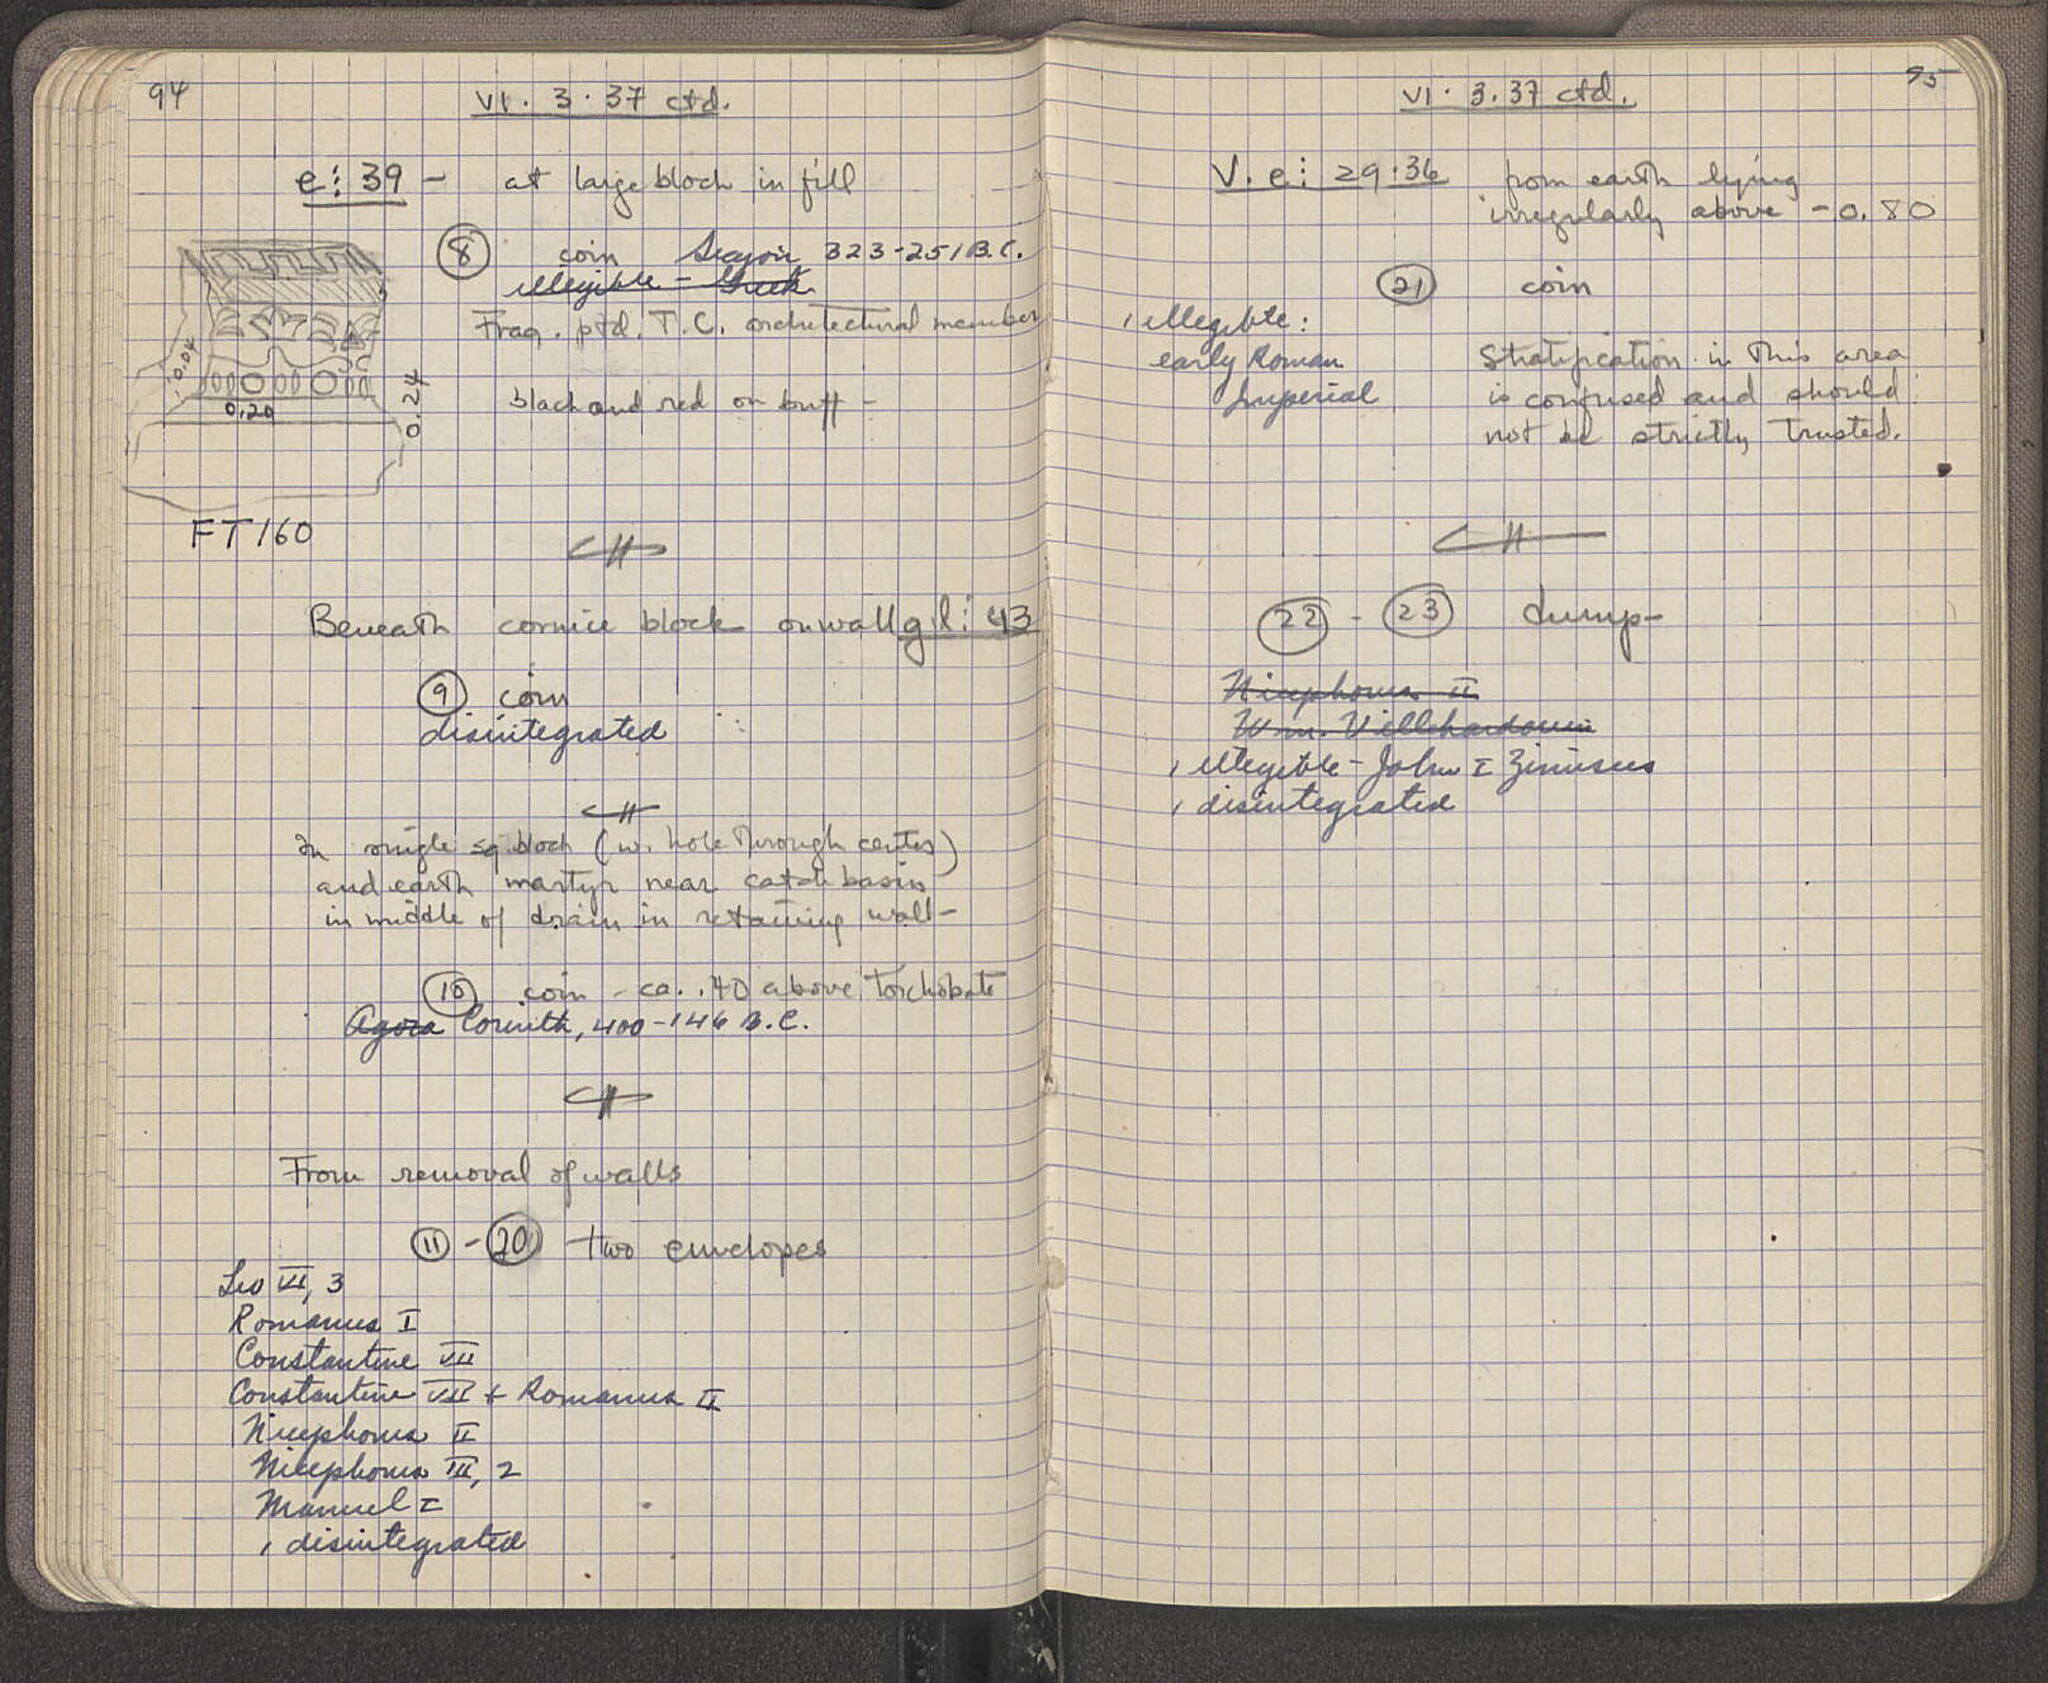 94
VI. 3. 37 ctd.
e: 39 - at large block in fill
8 coin Sicyon 323-251 B.C.
illegible - Greek
Frag. ptd. T.C. architectural member
black and red on buff -
0.04
0.20
0.24
FT160
Beneath cornice block on wall g.l: 43
9 coin
disintegrated
In single sq. block (w. hole through center)
and earth martyr near catch basin
in middle of drain in retaining wall -
10 coin - ca. .40 above Toichobate
Agora Corinth, 400-146 B.C.
From removal of walls
11 - 20 two envelopes
Leo VI, 3
Romanus I
Constantine VII
Constantine VII + Romanus II
Nicephorus II
Nicephorus III, 2
Manuel I
1 disintegrated
95
VI. 3. 37 ctd.
V. e: 29:36 from earth lying
irregularly above -0.80
21 coin
1 illegible:
early Roman
Imperial
Stratification in this area
is confused and should
not be strictly trusted.
22 - 23 dump -
Nicephorus II
Wm. Villehardouin
1 illegible - John I Zimisces
1 disintegrated